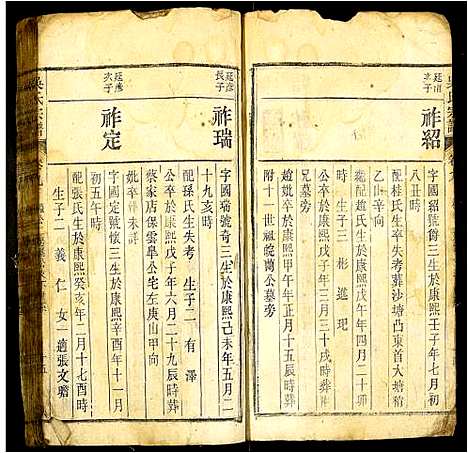 祚紹
次子
字國紹號爵三生於康熙壬子年何月
八丑時
配桂氏生卒失考葬沙塘凸東首大塘稍
乙山辛向
繼配趙氏生於康熙戊午年四月二十卯
時 生子三 彬 進 玘
公卒於康熙戊子年三月三十戌時葬
兄墓旁
趙妣卒於康熙甲午年正月十五辰時葬
附十一世祖皖蘭公墓旁
祚瑞
廷彥
長子
字國瑞號奇三生於康熙己未年五月二
十九亥時
配孫氏生失考 生子二 有 澤
公卒於康熙戊子年六月二十九辰時葬
蔡家店保雲阜公宅左庚山甲向
妣卒葬未詳
祚定
廷彥
次子
字國定號懷三生於康熙辛酉年十一月
初五午時
配張氏生於康熙癸亥年二月十七酉時
生子二 義 仁 女一適張文瞻
吳氏宗譜
卷九